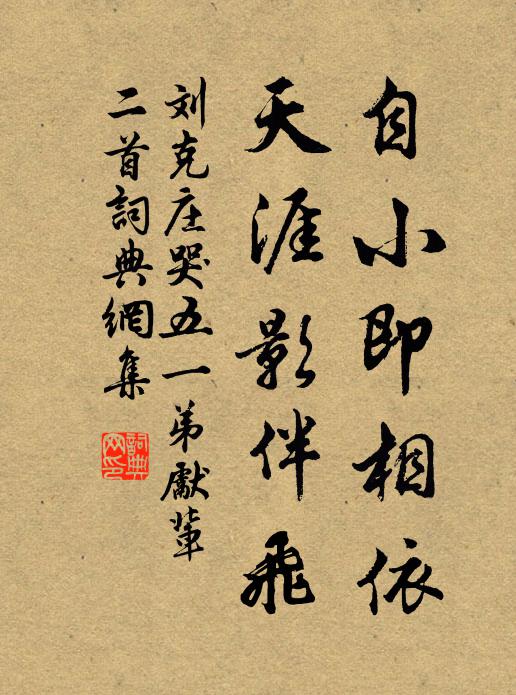 自小即相依
天涯影伴飛
刘克庄哭五一弟獻輩
二首詞典網集
詞典网印